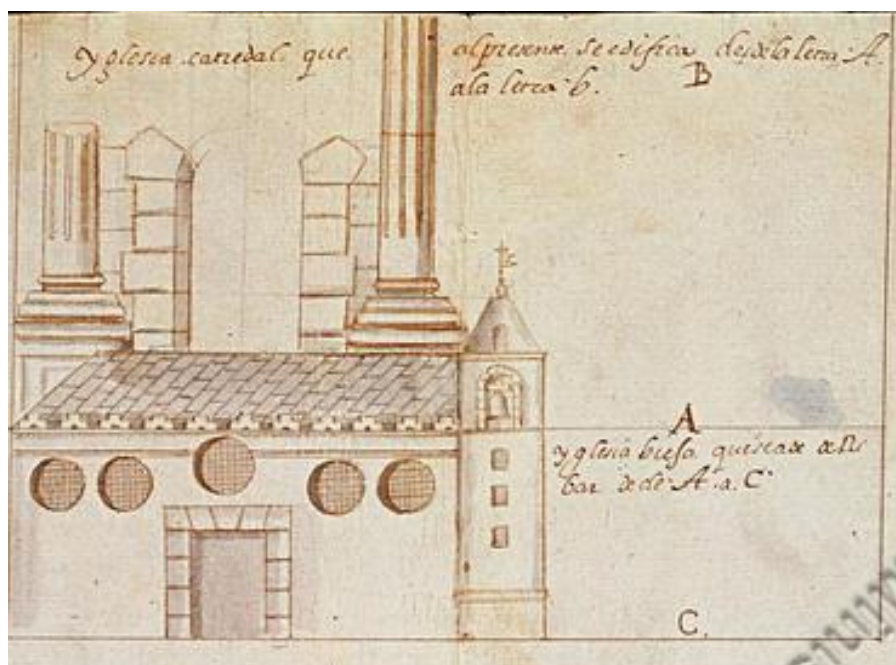 yglesia catedal que al presente se edifica desde la letra A.
a la letra b.
B
A
yglesia bieja que sea de deRi
bar de de A. a. C.
C.